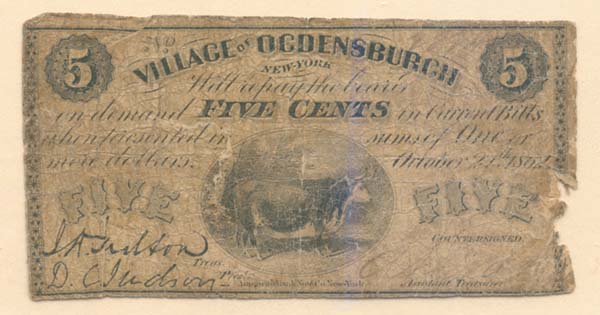 No
5 VILLAGE OF OGDENSBURCH 5
NEW-YORK
Will repay the bearer
on demand FIVE CENTS in Current Bills
when presented in sums of One or
more dollars. October 1862
FIVE FIVE
COUNTERSIGNED,
Treas.
D. C. Judson Pres.
American Bank Note Co. New-York
Assistant Treasurer